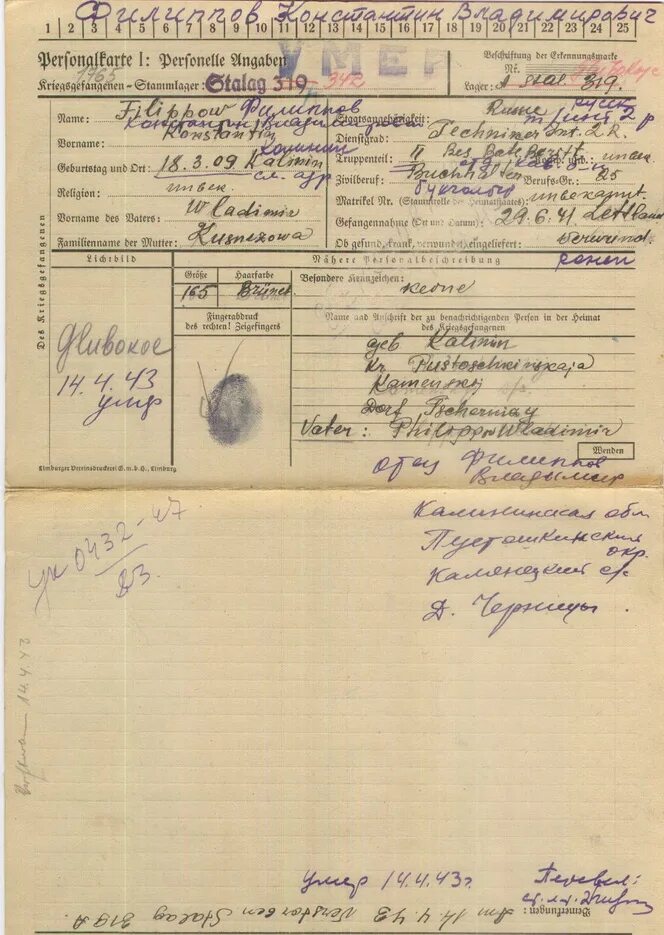 Филиппов Константин Владимирович
1 2 3 4 5 6 7 8 9 10 11 12 13 14 15 16 17 18 19 20 21 22 23 24 25
Personalkarte I: Personelle Angaben
УМЕР
Beschriftung der Erkennungsmarke
1765
Nr.
Kriegsgefangenen-Stammlager: Stalag 319
342
Lager: Stal. 319.
Name: Filippow Филиппов
Staatsangehörigkeit: Russe русск
Константин Владимирович
Vorname: Konstantin
Dienstgrad: Techniker Int. 2 R.
т/инт. 2 р
Калинин
Truppenteil:
Geburtstag und Ort: 18.3.09 Kalinin
Zivilberuf: Buchhalter Berufs-Gr.: 25
Religion: unbek.
бухгалтер
Matrikel Nr. (Stammrolle des Heimatstaates): unbekannt.
Vorname des Vaters: Wladimir
Gefangennahme (Ort und Datum): 29.6.41 Lettland
Familienname der Mutter: Kusnezowa
Ob gesund, krank, verwundet eingeliefert: verwund.
ранен
Des Kriegsgefangenen
Lichtbild
Nähere Personalbeschreibung
Größe
Haarfarbe
Besondere Kennzeichen:
165
Brünet
keine
Fingerabdruck
des rechten! Zeigefingers
Name und Anschrift der zu benachrichtigenden Person in der Heimat
des Kriegsgefangenen
Глибокое
14.4.43
умер
geb Kalinin
Kr. Pustoschkinskaja
Kamenskij
Dorf Tschernizy
Vater: Philippow Wladimir
Wenden
Limburger Vereinsdruckerei G.m.b.H., Limburg
отец Филиппов
Владимир
Калининская обл
Пустошкинский
окр.
Каменецкий с/с
Д. Черницы
Ук 0432-47
23.
14.4.43
умер 14.4.43г.
Перевел:
Bemerkungen: Am 14.4.43 Verstorben Stalag 319 A